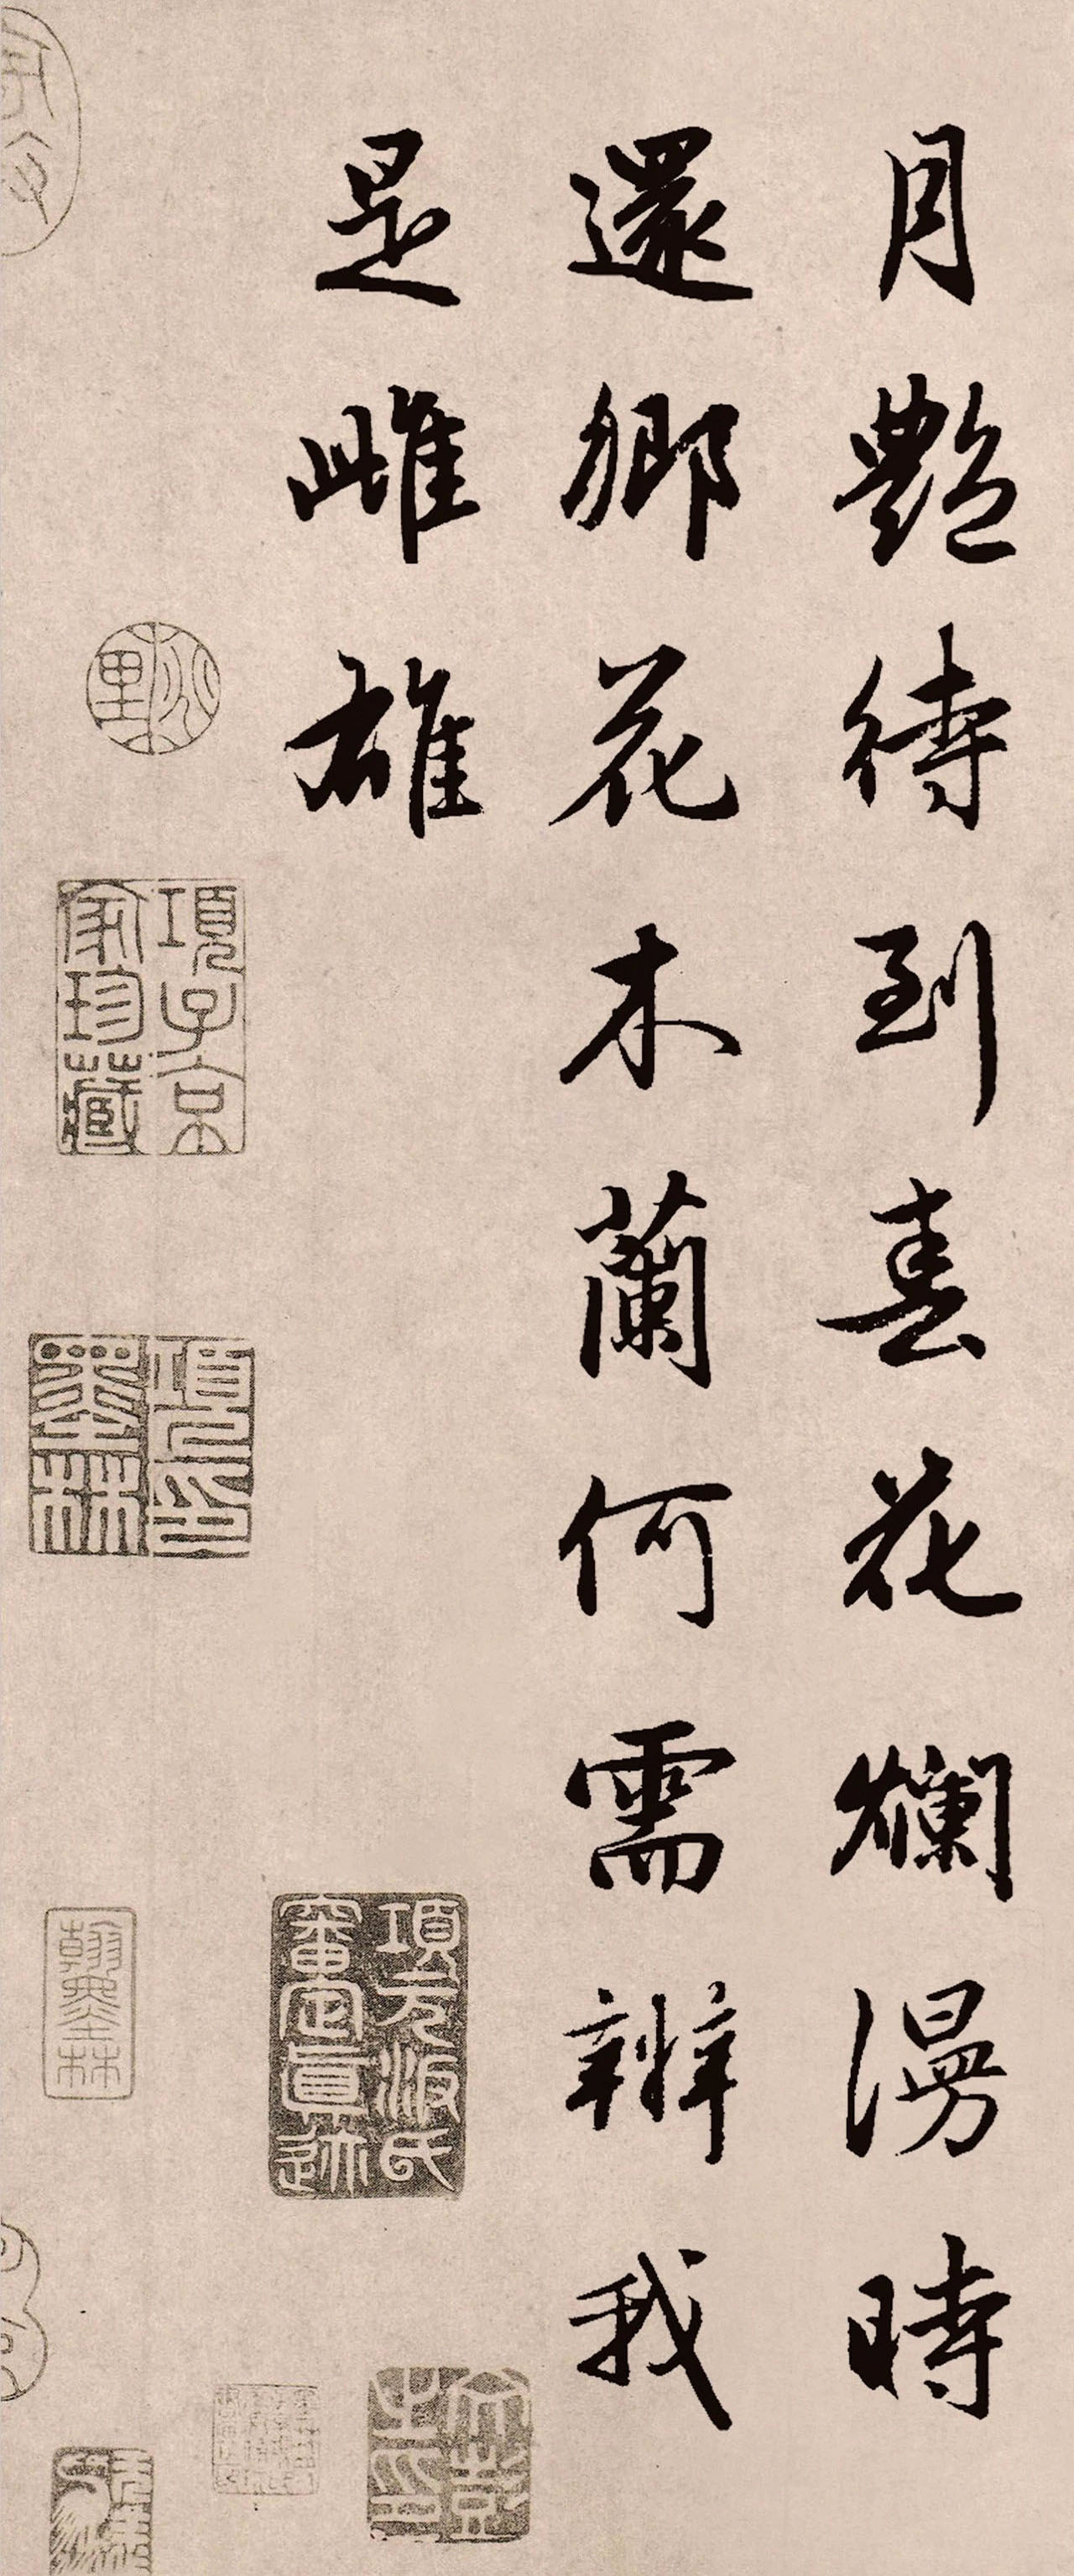 月艷待到春花爛漫時
還鄉花木蘭何需辨我
是雌雄
項子京家珍藏
墨林
項元汴氏審定真跡
翰墨林